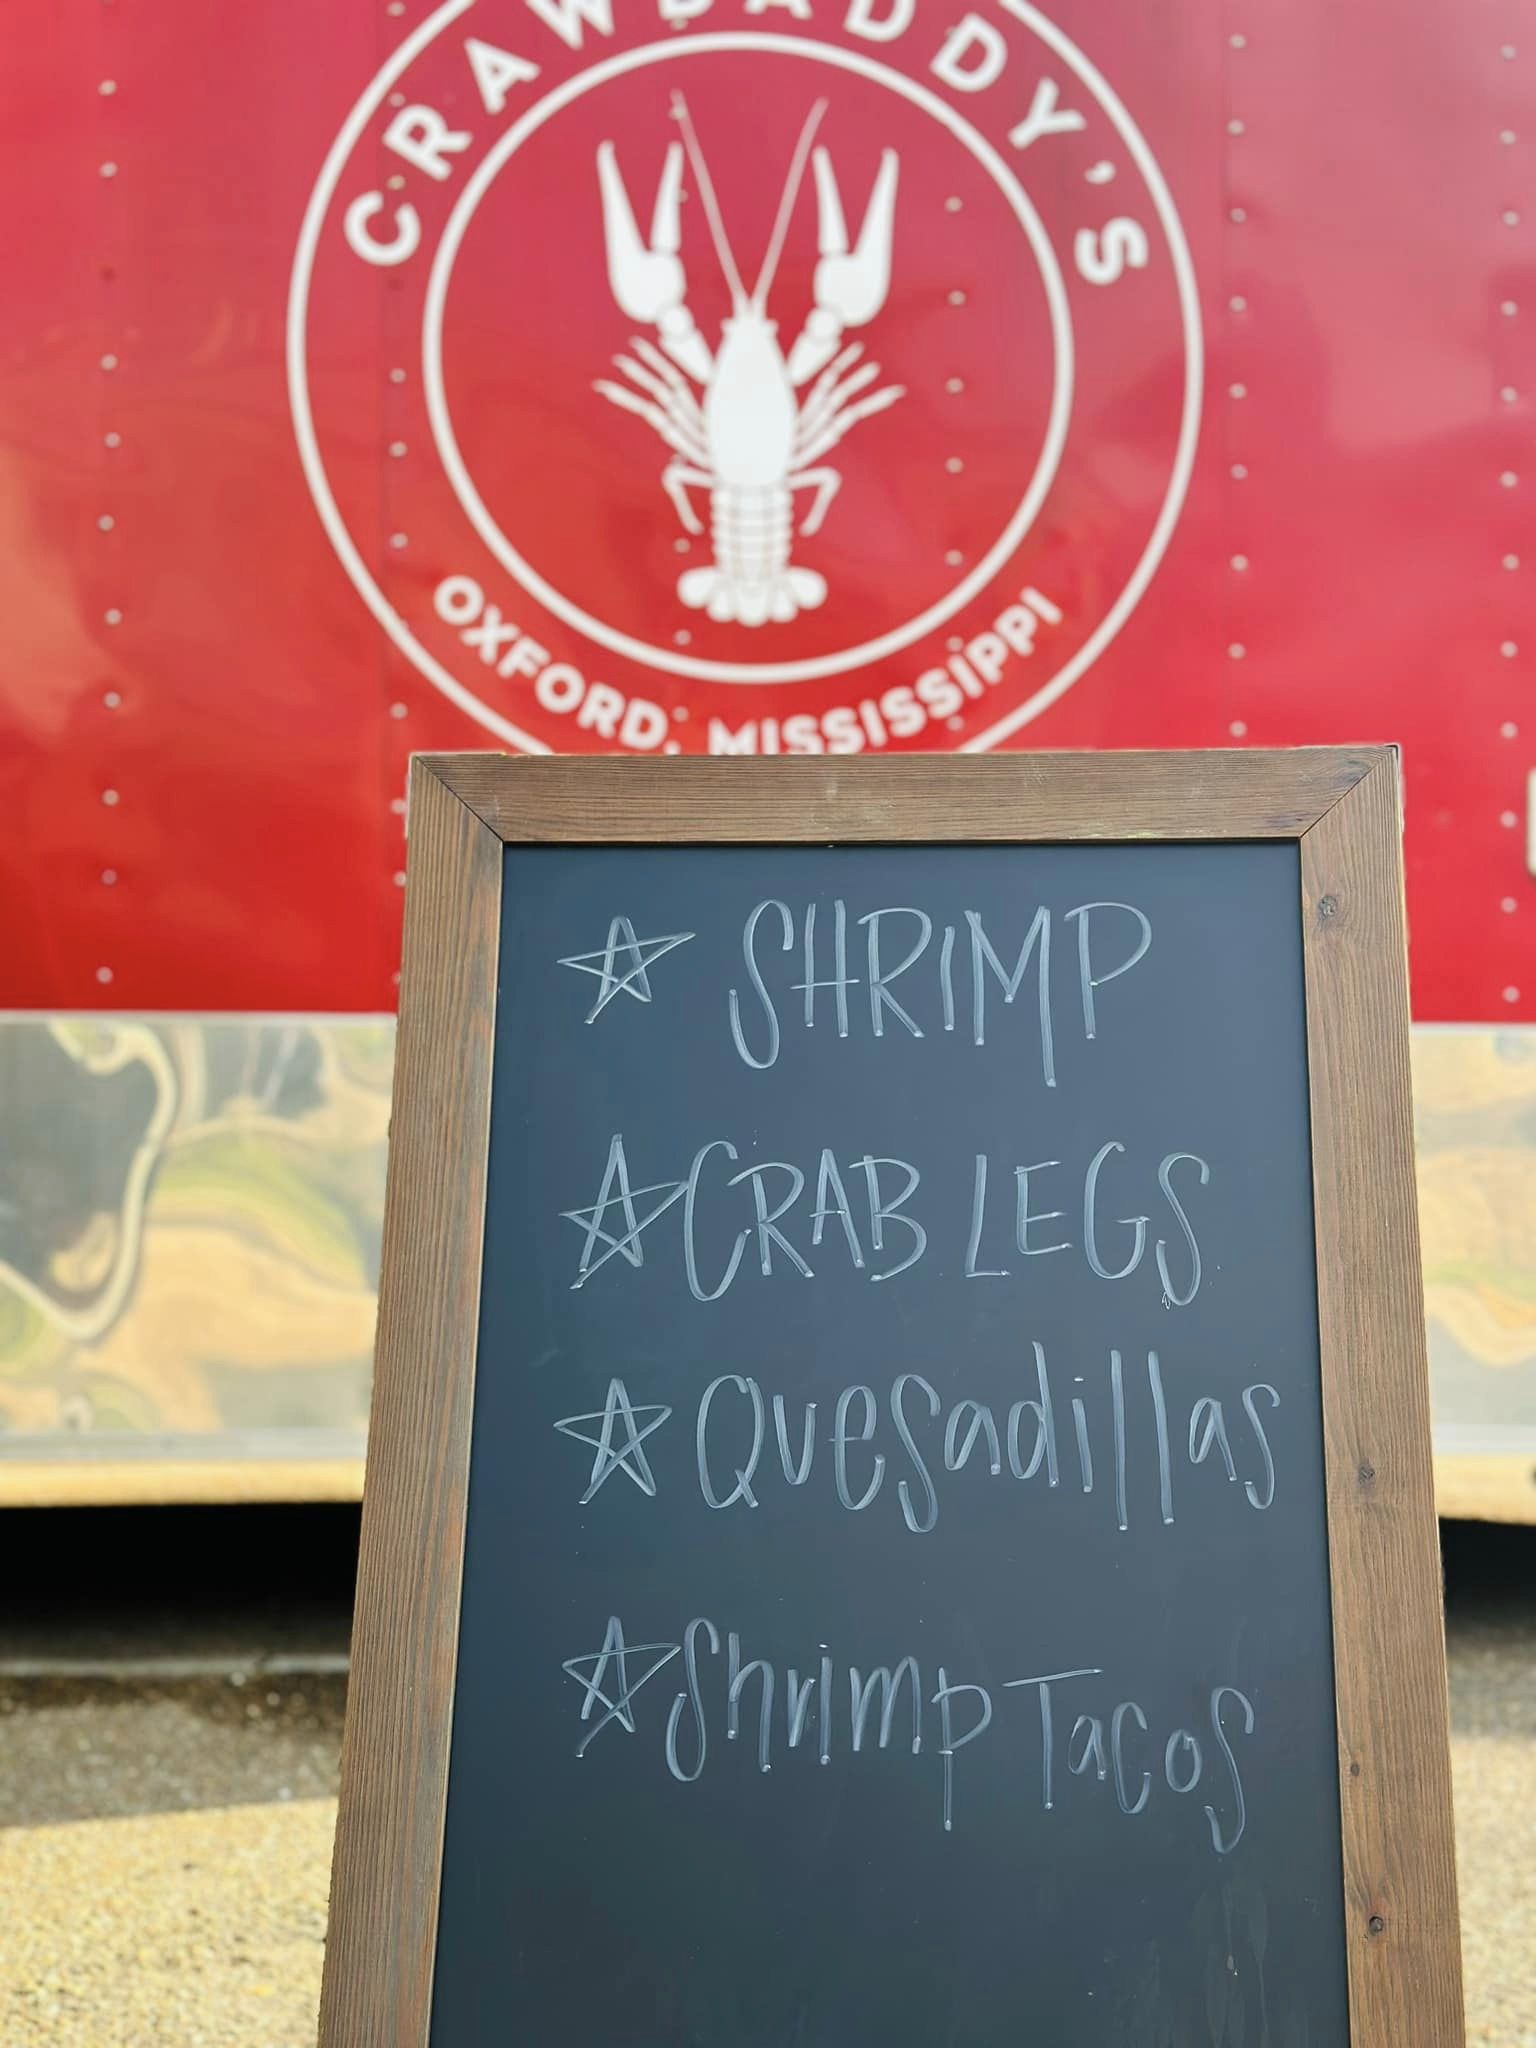 CRAWDADDY'S
OXFORD, MISSISSIPPI
SHRIMP
CRAB LEGS
Quesadillas
Shrimp Tacos